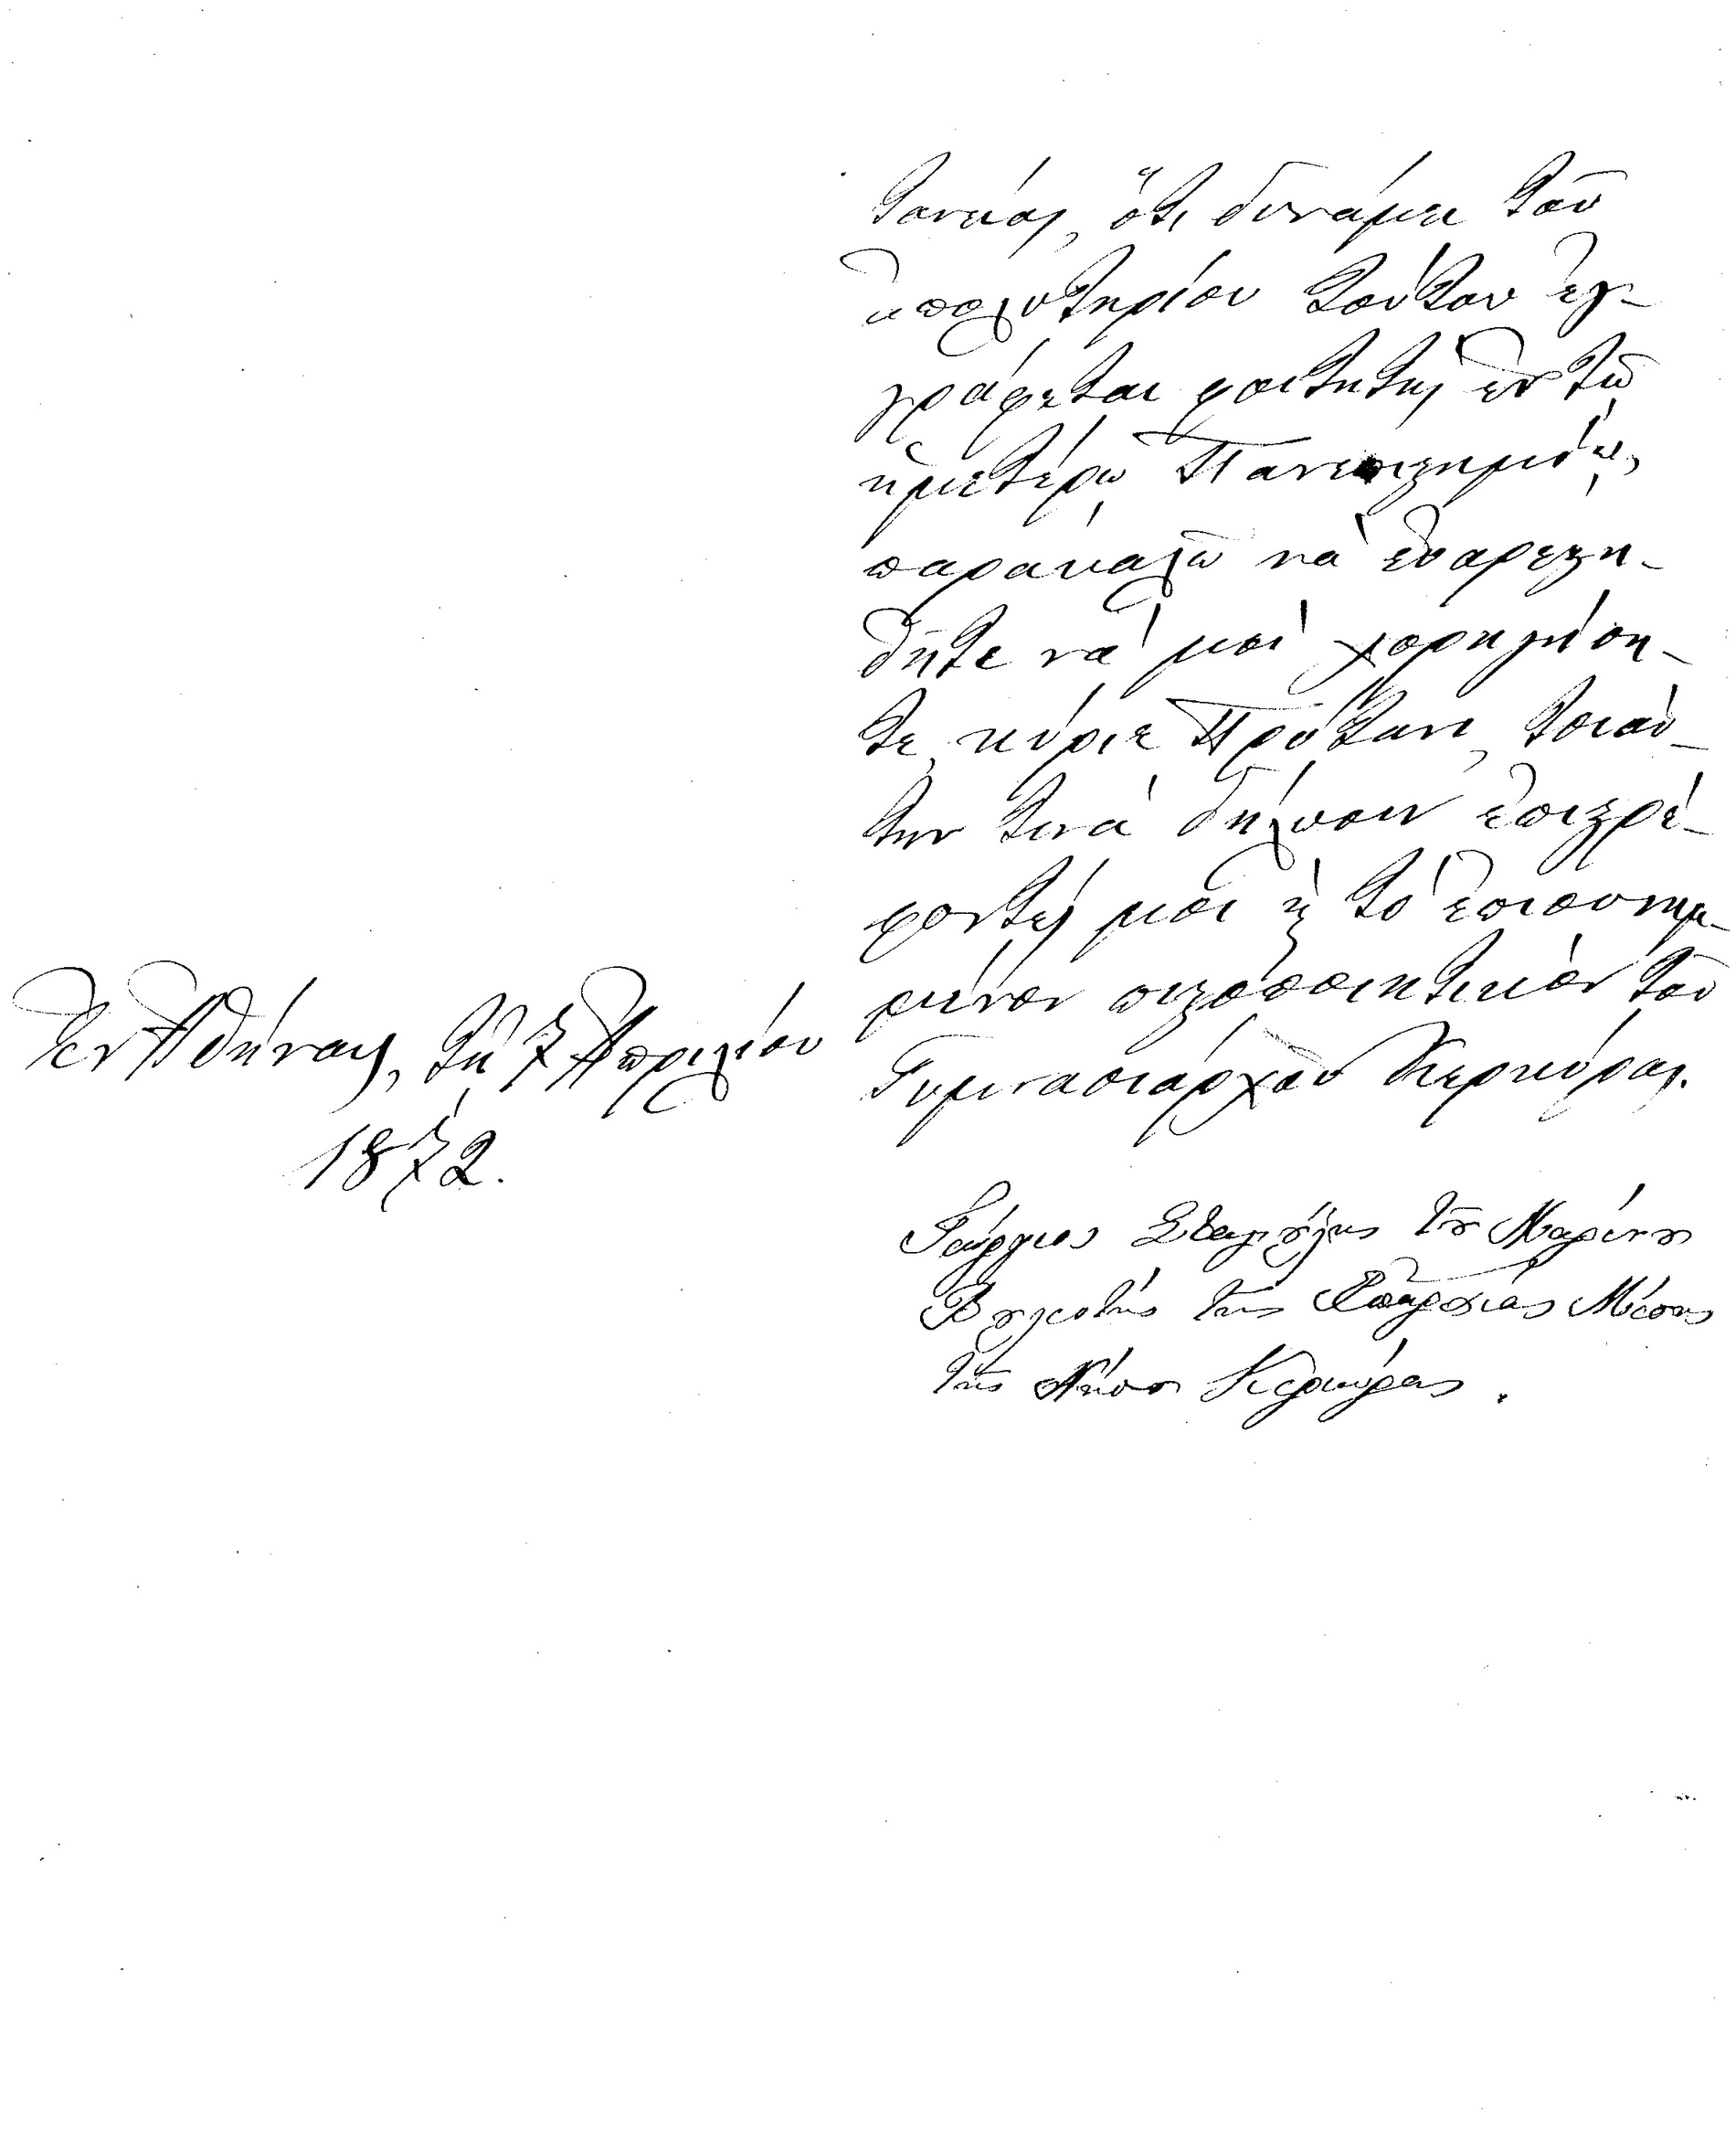 τανικῶς, ὅτι δυνάμει τοῦ
ἀπολυτηρίου τούτου ἐγ-
γράφεται φοιτητὴς ἐν τῷ
ἡμετέρῳ Πανεπιστημίῳ,
παρακαλῶ νὰ εὐαρεστη-
θῆτε νὰ μοὶ χορηγήση-
τε, κύριε Πρύτανι, τοιαύ-
την τινὰ δήλωσιν ἐπιστρέ-
φοντές μοι καὶ τὸ ἐπισυνημ-
μένον πιστοποιητικὸν τοῦ
Γυμνασιάρχου Κερκύρας.
Ἐν Ἀθήναις, τῇ 7 Ἀπριλίου
1872.
Γεώργιος τοῦ Μαρίνου
Βουλευτὴς τῆς Ἐπαρχίας Μέσης
τῆς Νήσου Κερκύρας.